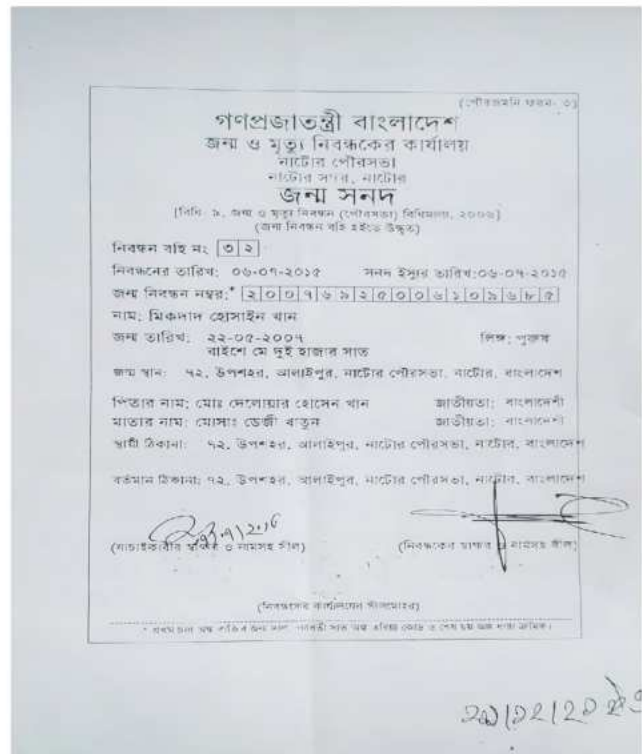 (পৌরসভা ফরম- ৩)
গণপ্রজাতন্ত্রী বাংলাদেশ
জন্ম ও মৃত্যু নিবন্ধকের কার্যালয়
নাটোর পৌরসভা
নাটোর সদর, নাটোর
জন্ম সনদ
[বিধি- ৯, জন্ম ও মৃত্যু নিবন্ধন (পৌরসভা) বিধিমালা, ২০০৬]
(জন্ম নিবন্ধন বহি হইতে উদ্ধৃত)
নিবন্ধন বহি নং ৩২
নিবন্ধনের তারিখ: ০৬-০৭-২০১৫ সনদ ইস্যুর তারিখ:০৬-০৭-২০১৫
জন্ম নিবন্ধন নম্বর:* ২০০৭৬৯২৫০০৬১০৯৬৮৫
নাম: মিকদাদ হোসাইন খান
জন্ম তারিখ: ২২-০৫-২০০৭ লিঙ্গ: পুরুষ
বাইশে মে দুই হাজার সাত
জন্ম স্থান: ৭২, উপশহর, আলাইপুর, নাটোর পৌরসভা, নাটোর, বাংলাদেশ
পিতার নাম: মোঃ দেলোয়ার হোসেন খান জাতীয়তা: বাংলাদেশী
মাতার নাম: মোসাঃ ডেজী খাতুন জাতীয়তা: বাংলাদেশী
স্থায়ী ঠিকানা: ৭২, উপশহর, আলাইপুর, নাটোর পৌরসভা, নাটোর, বাংলাদেশ
বর্তমান ঠিকানা: ৭২, উপশহর, আলাইপুর, নাটোর পৌরসভা, নাটোর, বাংলাদেশ
(যাচাইকারীর স্বাক্ষর ও নামসহ সীল) (নিবন্ধকের স্বাক্ষর ও নামসহ সীল)
(নিবন্ধকের কার্যালয়ের সীলমোহর)